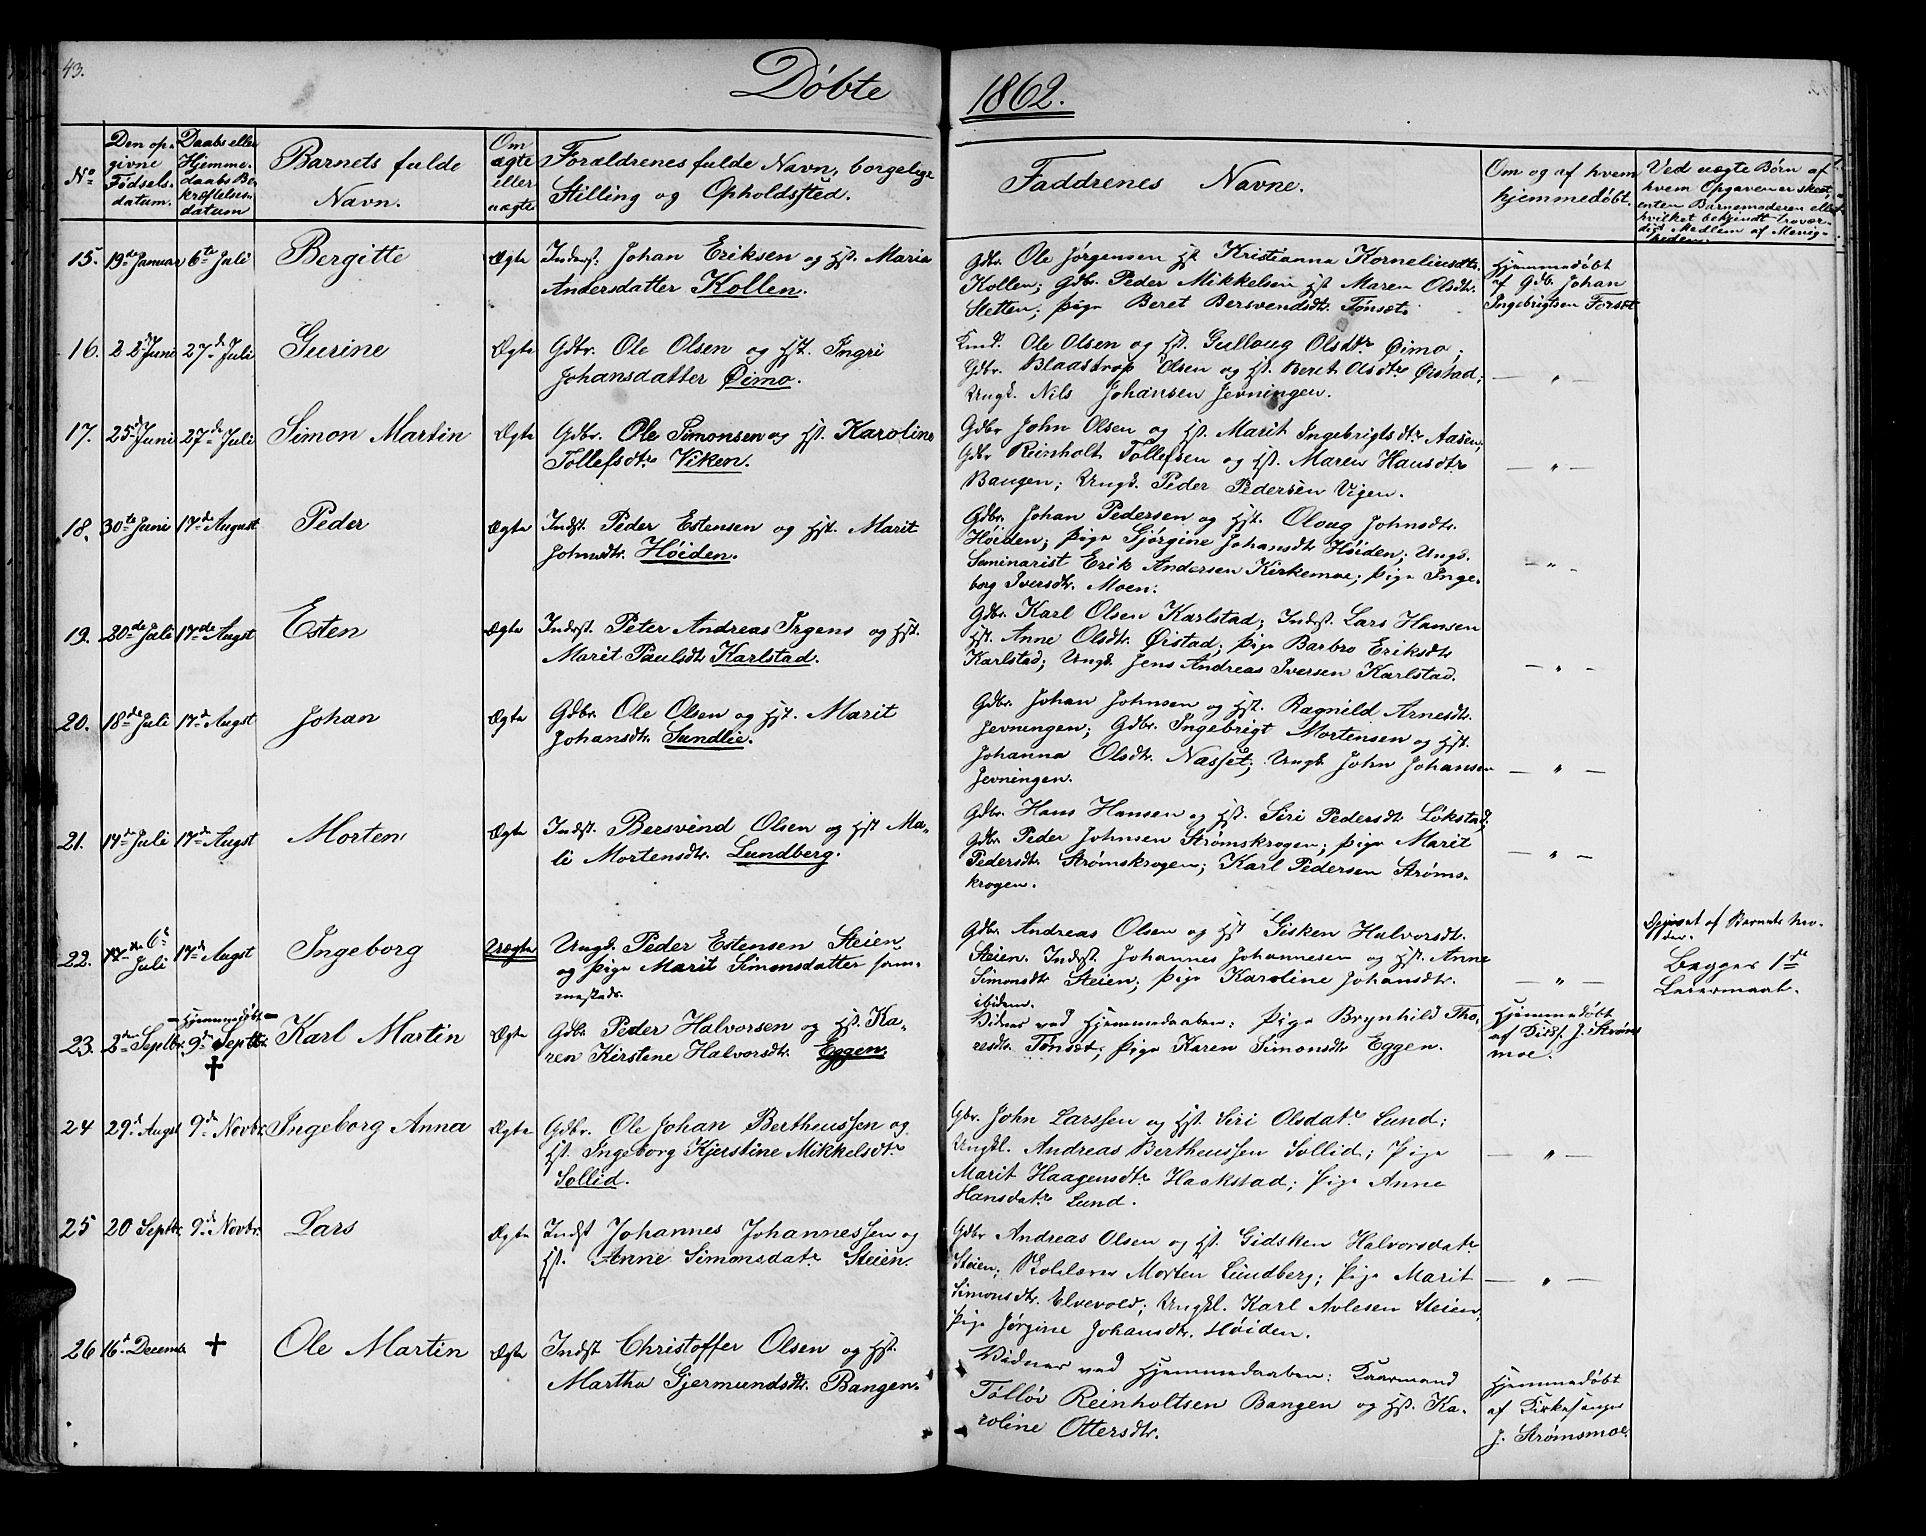 43.
Døbte 1862.
No
Den op-
givne
Fødsels-
datum.
Daabs eller
Hjemme-
daabs Be-
kræftelses-
datum
Barnets fulde
Navn.
Om
ægte
eller
uægte
Forældrenes fulde Navn, borgelige
Stilling og Opholdsted.
Faddrenes Navne.
Om og af hvem
hjemmedøbt.
Ved uægte Børn af
hvem Opgaven er skeet,
enten Barnemoderen eller
hvilket bekjendt trovær-
digt Medlem af Menig-
heden.
15. 19de Januar 6te Juli Bergitte Ægte
Inderst. Johan Eriksen og Hst. Maria
Andersdatter Kollen.
Gdbr. Ole Jørgensen Hst Kristianna Korneliusdtr.
Kollen; Gdb. Peder Mikkelsen Hst Maren Olsdtr.
Sletten; Pige Beret Bersvendsdtr. Tønset.
Hjemmedøbt
af Gdb. Johan
Ingebrigtsen Forset
16. 22d Juni 27de Juli Gurine Ægte
Gdbr. Ole Olsen og Hst. Ingri
Johansdatter Øimo.
Ole Olsen og Hst. Gulloug Olsdtr Øimo;
Gdbr. Blaastrop Olsen og Hst. Beret Olsdtr Øistad;
Ungk. Nils Johansen Jevningen.
— " —
17. 25d Juni 27de Juli Simon Martin Ægte
Gdbr. Ole Simonsen og Hst. Karoline
Tollefsdtr. Viken.
Gdbr John Olsen og Hst. Marit Ingebrigtsdtr Aasen;
Gdbr Reinholt Tollefsen og Hst. Maren Hansdtr
Bangen; Ungk. Peder Pedersen Vigen.
— " —
18. 30te Juni 17de August Peder Ægte
Indst. Peder Estensen og Hst. Marit
Johnsdtr. Høiden.
Gdbr. Johan Pedersen og Hst. Oloug Johnsdtr.
Høiden; Pige Gjørgine Johansdtr Høiden; Ungk.
Seminarist Erik Andersen Kirkemoe; Pige Inge-
borg Iversdtr. Moen.
— " —
19. 20de Juli 17de Augst Esten Ægte
Inderst. Peter Andreas Irgens og Hst.
Marit Paulsdtr Karlstad.
Gdbr. Karl Olsen Karlstad; Inderst. Lars Hansen
Hst. Anne Olsdtr. Øistad; Pige Barbro Eriksdtr
Karlstad; Ungk. Jens Andreas Iversen Karlstad.
— " —
20. 18de Juli 17de Augst Johan Ægte
Gdbr. Ole Olsen og Hst. Marit
Johansdtr. Sundlie.
Gdbr. Johan Johnsen og Hst. Ragnild Arnesdtr.
Jevningen; Gdbr. Ingebrigt Mortensen og Hst.
Johanna Olsdtr. Næsset; Ungk John Johansen
Jevningen.
— " —
21. 14de Juli 17de Augst Morten Ægte
Indst. Bersvend Olsen og Hst Ma-
li Mortensdtr. Lundberg.
Gdbr. Hans Hansen og Hst. Siri Pedersdtr Løkstad;
Gdbr Peder Johnsen Strømskrogen; Pige Marit
Pedersdtr. Strømskrogen; Karl Pedersen Strøms-
krogen.
— " —
22. 6te Juli 17de Augst Ingeborg Uægte
Ungk. Peder Estensen Steien
og Pige Marit Simonsdatter sam-
mestads.
Gdbr. Andreas Olsen og Hst Gisken Halvorsdtr.
Steien. Inderst. Johannes Johannesen og Hst. Anne
Simonsdtr Steien; Pige Karoline Johansdtr.
ibidem.
— " —
Opgivet af Barnets Mo-
der.
Begges 1ste
Leiermaal.
23. 2den Septbr. — Hjemmedøbt — 9de Septbr. † Karl Martin Ægte
Gdbr Peder Halvorsen og Hst. Ka-
ren Kirstene Halvorsdtr. Eggen.
Vidner ved Hjemmedaaben: Pige Brynhild Tho-
resdtr. Tønset; Pige Karen Simonsdtr Eggen.
Hjemmedøbt
af Kirks. J. Strøms
moe.
24 29d Augst 9de Novbr. Ingeborg Anna Ægte
Gdbr. Ole Johan Bertheussen og
Hst. Ingeborg Kjerstine Mikkelsdtr
Sollid.
Gbr. John Larssen og Hst. Siri Olsdatr Lund;
Ungkl. Andreas Bertheussen Sollid; Pige
Marit Haagensdtr. Haakstad; Pige Anne
Hansdatr Lund.
— " —
25 20 Septbr. 9de Novbr. Lars Ægte
Indst Johannes Johannessen og
Hst. Anne Simonsdatr Steien.
Gdbr Andreas Olsen og Hst. Gidsken Halvorsdatr
Steien; Skolelærer Morten Lundberg; Pige Marit
Simonsdtr. Elvevold; Ungkl. Karl Avlesen Steien,
Pige Jørgine Johansdtr. Høiden.
— " —
26 16d Decembr † Ole Martin Ægte
Indst Christoffer Olsen og Hst.
Martha Gjermundsdtr. Bangen.
Vidner ved Hjemmedaaben: Kaarmand
Tølløv Reinholtsen Bangen og Hst. Ka-
roline Ottersdtr.
Hjemmedøbt
af Kirkesanger
J. Strømsmoe.